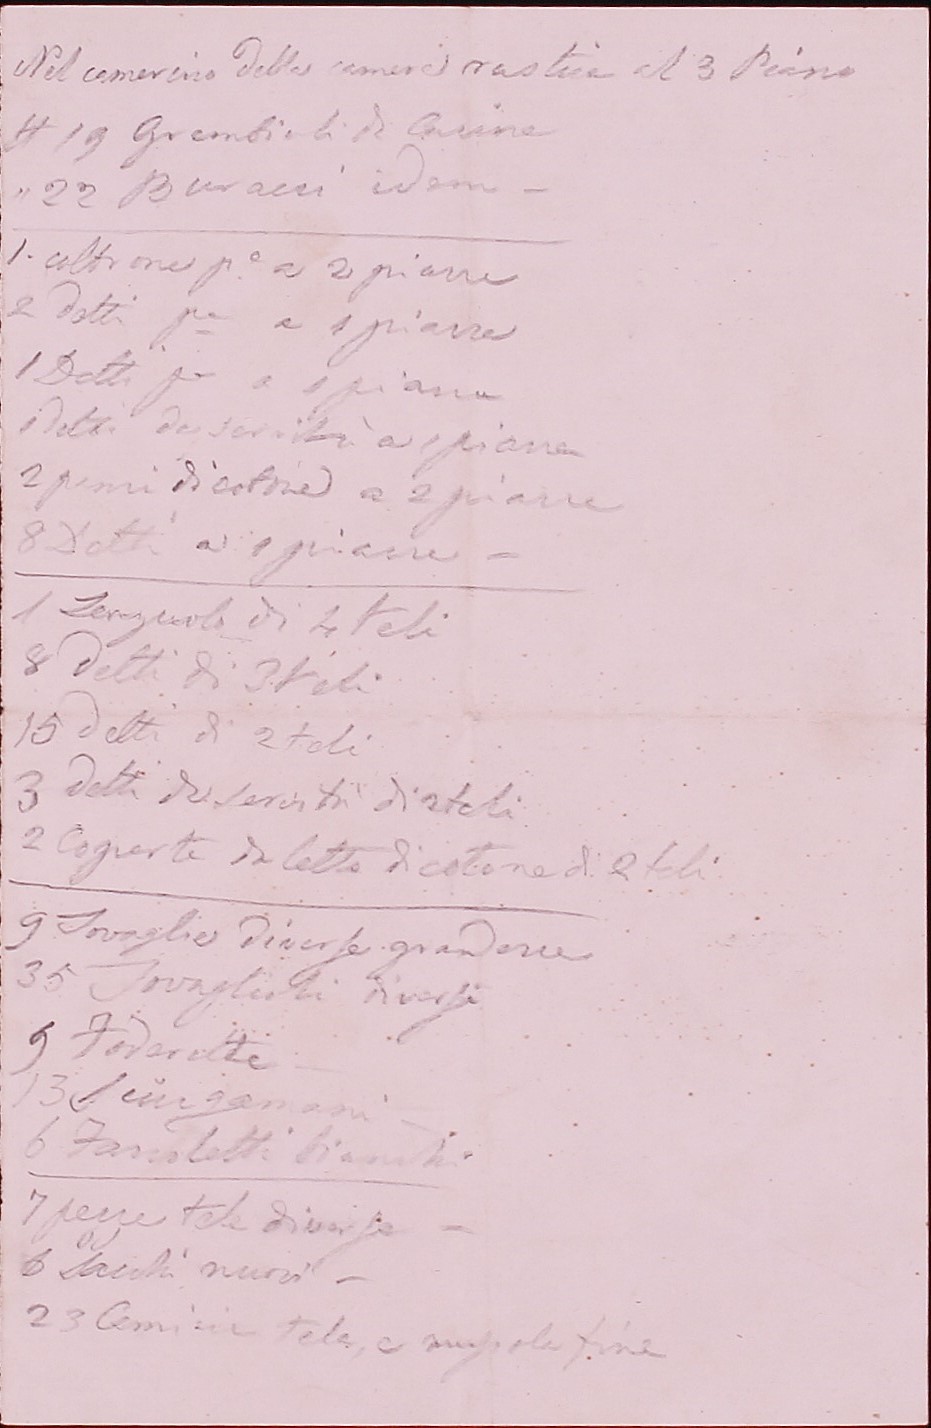 Nel camerino della camera rustica al 3 Piano
# 19 Grembioli di Cucina
" 22 Buracci idem -
1. coltrone p.o a 2 piazze
2 Detti p.a a 1 piazze
1 Detti p.a a 1 piazza
1 Detti da servitù a 1 piazza
2 panni di cotone a 2 piazze
8 Detti a 1 piazze -
1 Lenzuolo di 4 teli
8 Detti di 3 teli
15 detti di 2 teli
3 detti da servitù di 2 teli
2 Coperte da letto di cotone di 2 teli
9 Tovaglie diverse grandezze
35 Tovaglioli diversi
9 Foderette
13 Sciugamani
6 Fazzoletti bianchi
7 pezze tele diverse -
6 Sacchi nuovi -
23 Camicie tela, e fine